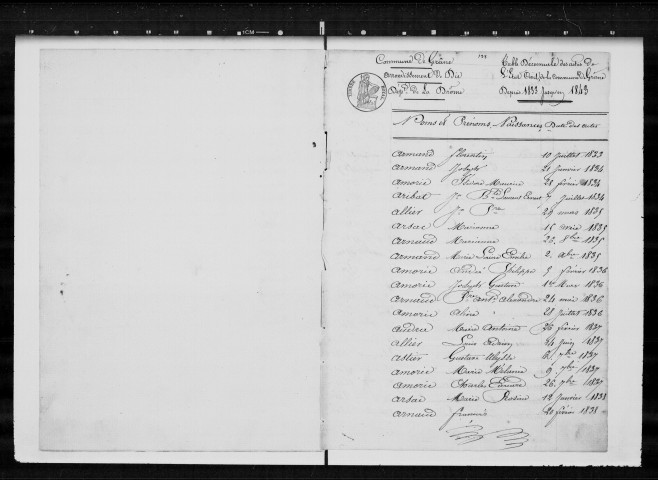 Commune de Grâne
Arrondissement de Die
Dépt de la Drôme
Table Décennale des actes de
l'Etat Civil de la Commune de Grâne
Depuis 1833 jusqu'en 1843
Noms et Prénoms, Naissances, Date des actes
Armand Florentin 10 juillet 1833
Armand Joseph 21 janvier 1834
Amorie Maurice 28 février 1834
Aribat Jn Bte Laurent Ernest 7 juillet 1834
Allier Jn Pre 29 mars 1835
Arsac Marianne 15 mai 1835
Arnaud Marianne 26 8bre 1835
Armand Marie Louise 2 1835
Amorie André Philippe 5 février 1836
Amorie Joseph Gustave 1er Mars 1836
Arnaud Pre Ante Alexandre 24 mai 1836
Amorie Aline 28 juillet 1836
Marie Antoine 26 février 1837
Allier Louis 24 juin 1837
Astier Gustave Ulysse 7bre 1837
Amorie Marie Mélanie 9 7bre 1837
Amorie Charles 26 7bre 1837
Arsac Marie Rosine 12 janvier 1838
Arnaud février 1838